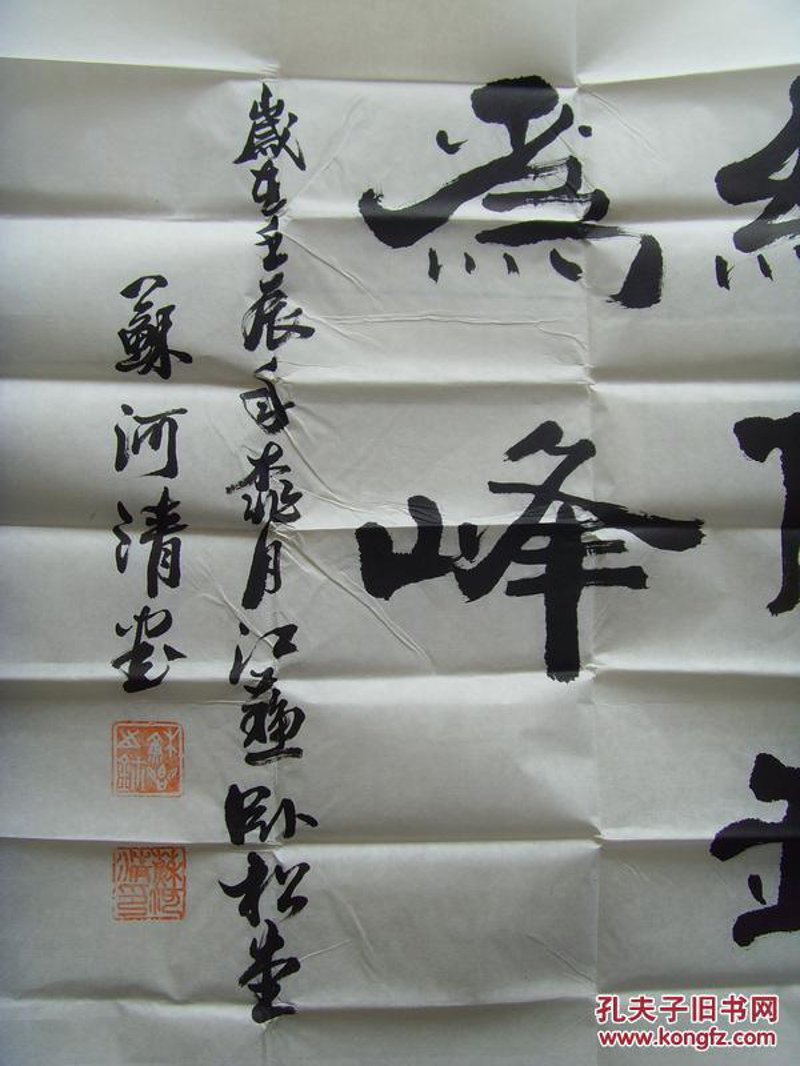 為峰
歲在壬辰年桃月江蘇臥松堂
蘇河清書
蘇河清印
孔夫子旧书网
www.kongfz.com